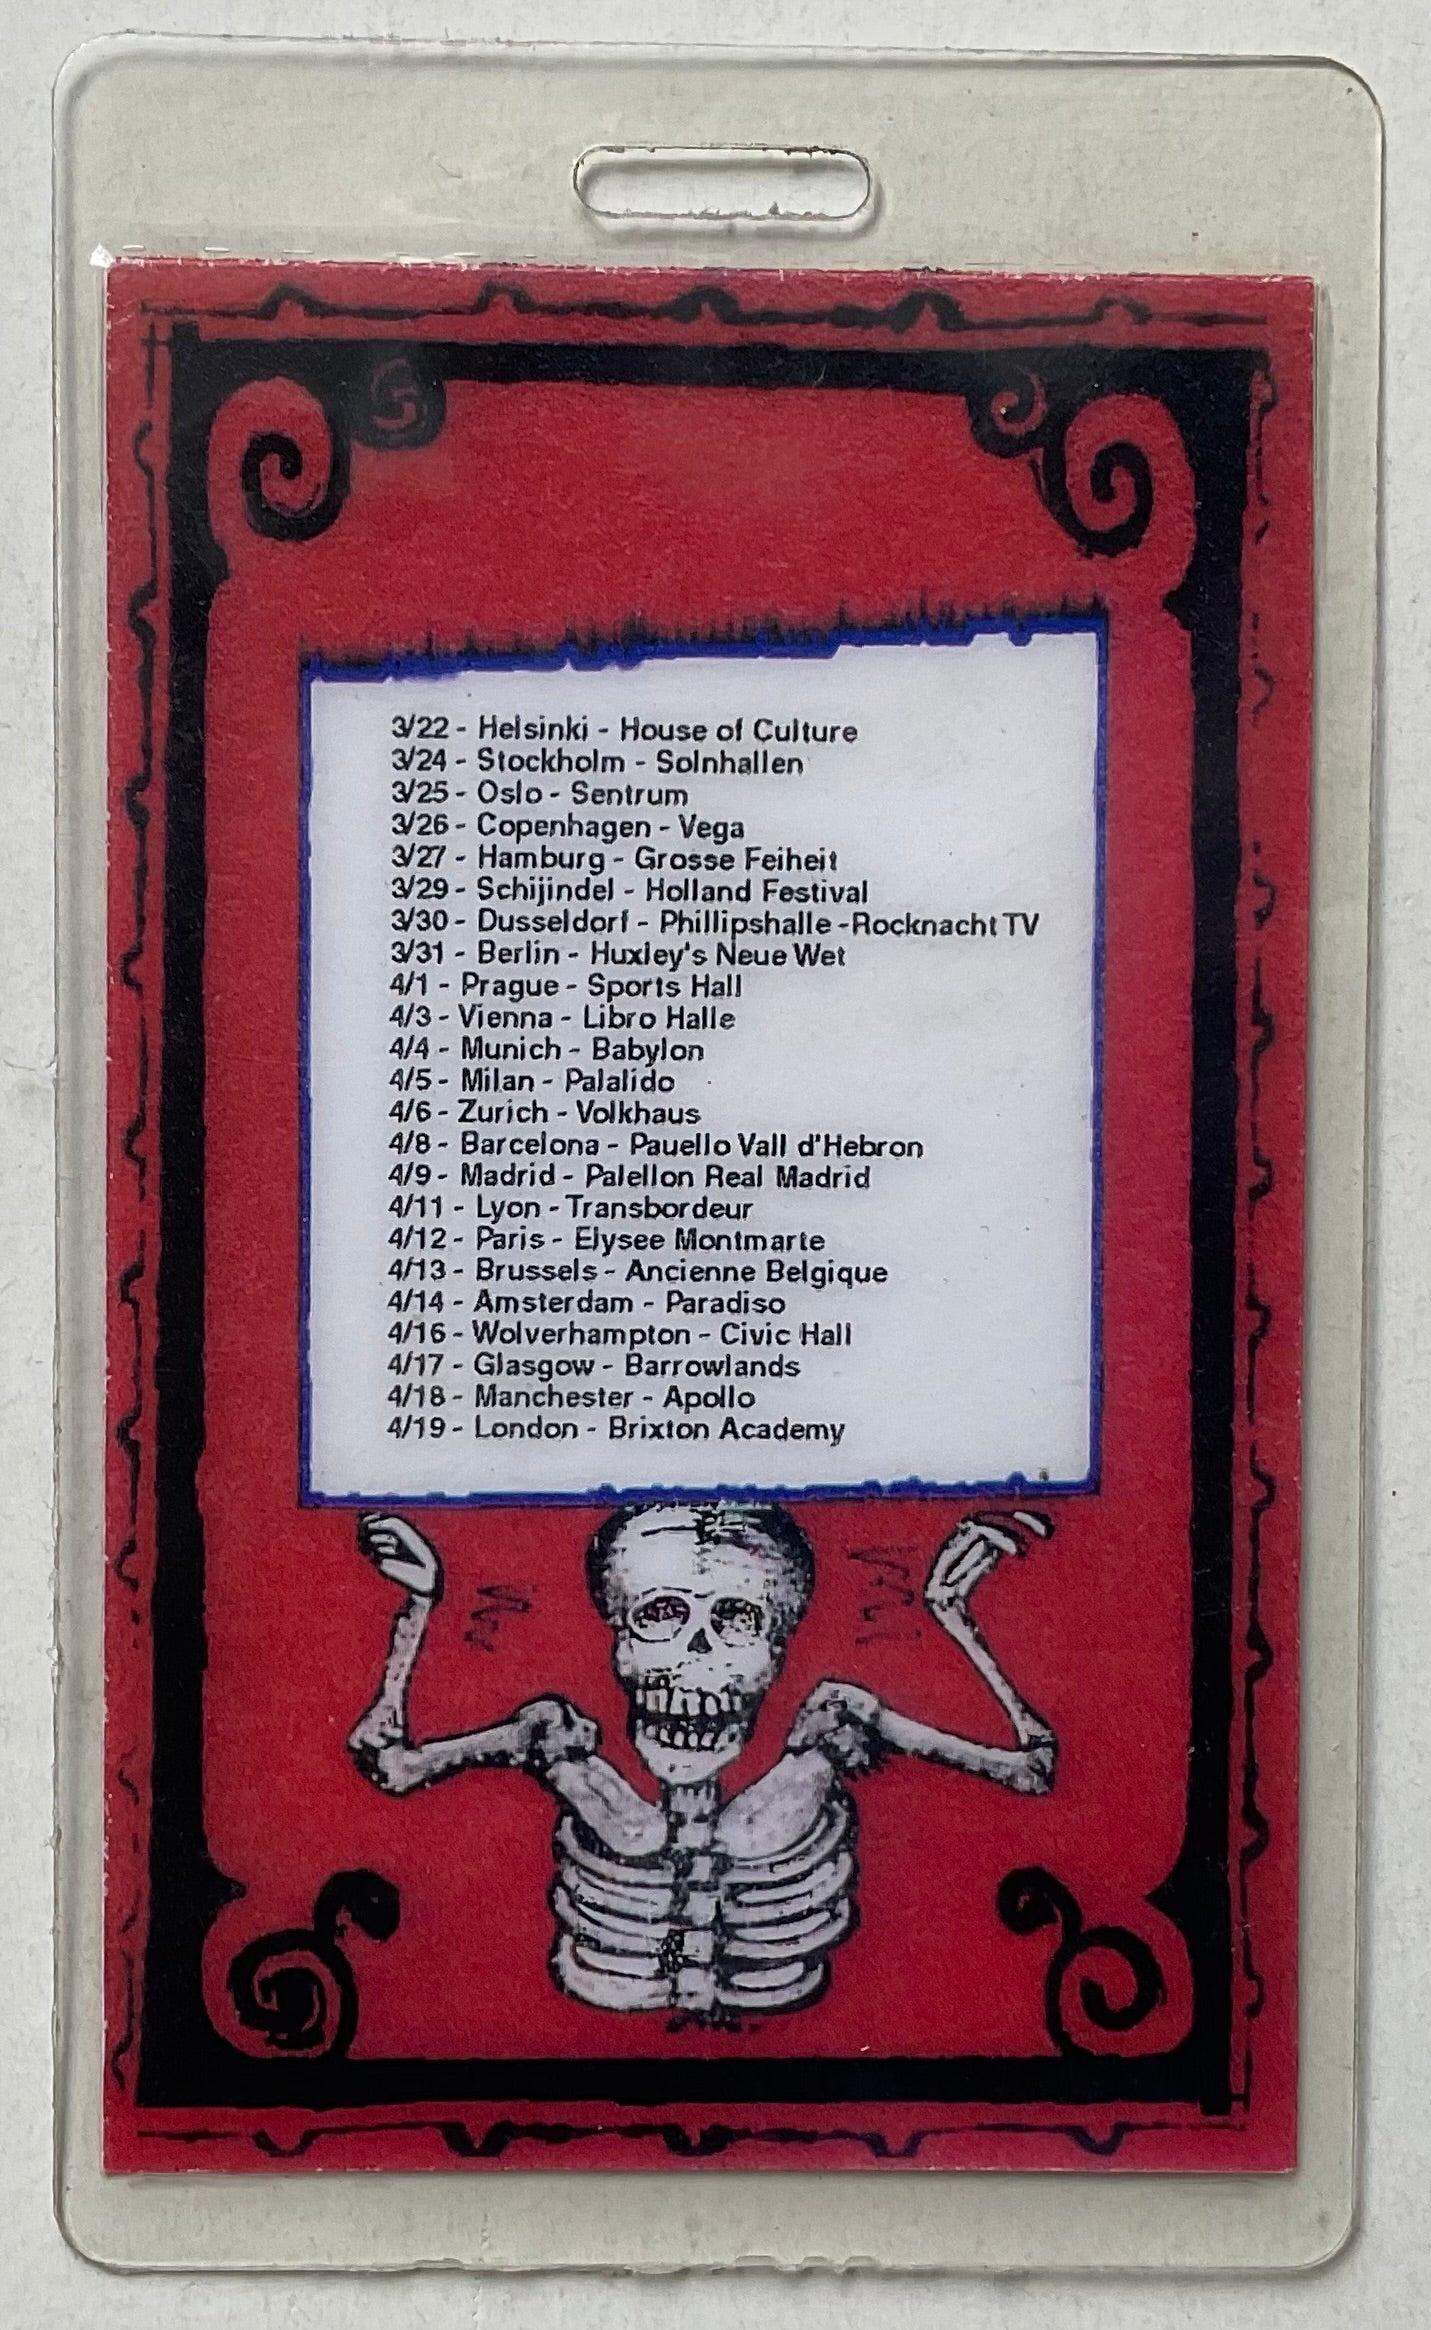 3/22 - Helsinki - House of Culture
3/24 - Stockholm - Solnhallen
3/25 - Oslo - Sentrum
3/26 - Copenhagen - Vega
3/27 - Hamburg - Grosse Feiheit
3/29 - Schijindel - Holland Festival
3/30 - Dusseldorf - Phillipshalle -Rocknacht TV
3/31 - Berlin - Huxley's Neue Wet
4/1 - Prague - Sports Hall
4/3 - Vienna - Libro Halle
4/4 - Munich - Babylon
4/5 - Milan - Palalido
4/6 - Zurich - Volkhaus
4/8 - Barcelona - Pauello Vall d'Hebron
4/9 - Madrid - Palellon Real Madrid
4/11 - Lyon - Transbordeur
4/12 - Paris - Elysee Montmarte
4/13 - Brussels - Ancienne Belgique
4/14 - Amsterdam - Paradiso
4/16 - Wolverhampton - Civic Hall
4/17 - Glasgow - Barrowlands
4/18 - Manchester - Apollo
4/19 - London - Brixton Academy